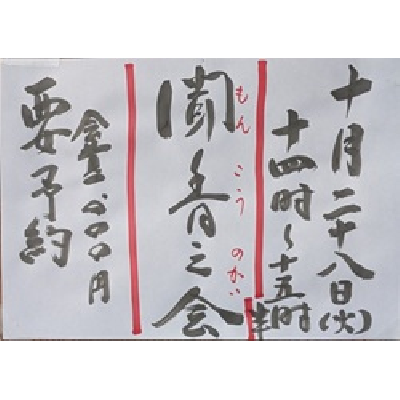 十月二十八日(火)
十四時~十五時半
聞香之会
もんこうのかい
会費二、000円
要予約